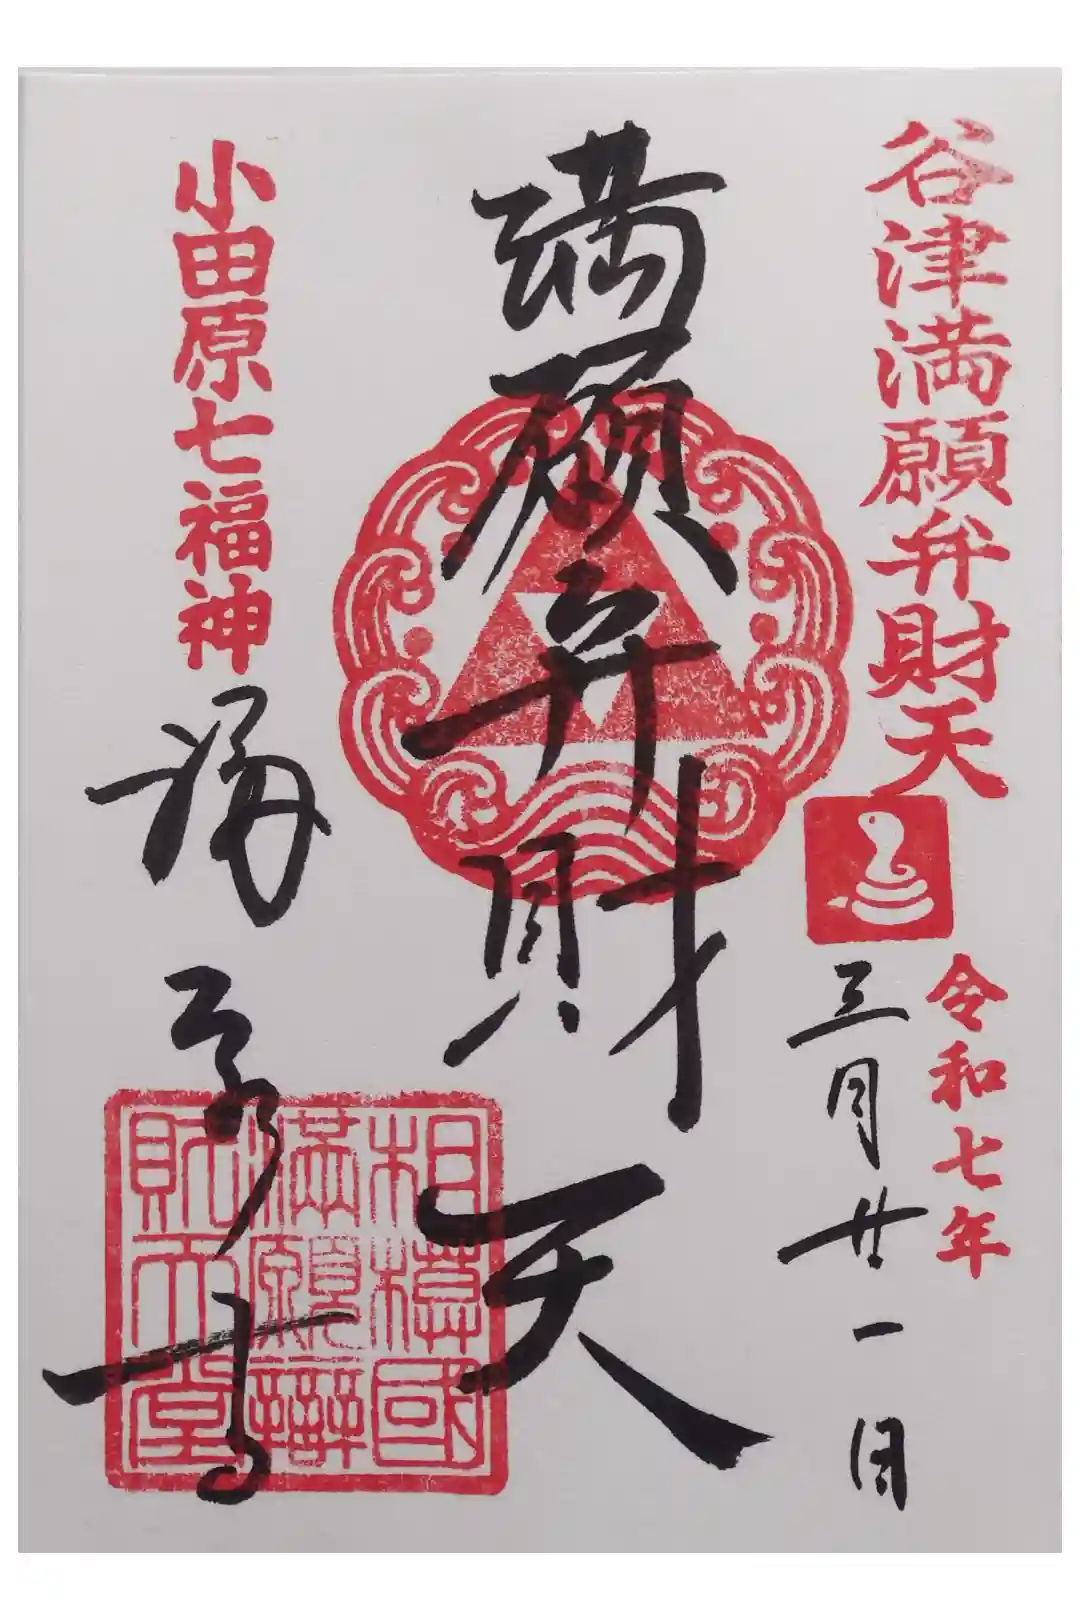 谷津満願弁財天
令和七年
三月廿一日
満願弁財天
小田原七福神
福泉寺
相模國
満願辨
財天堂